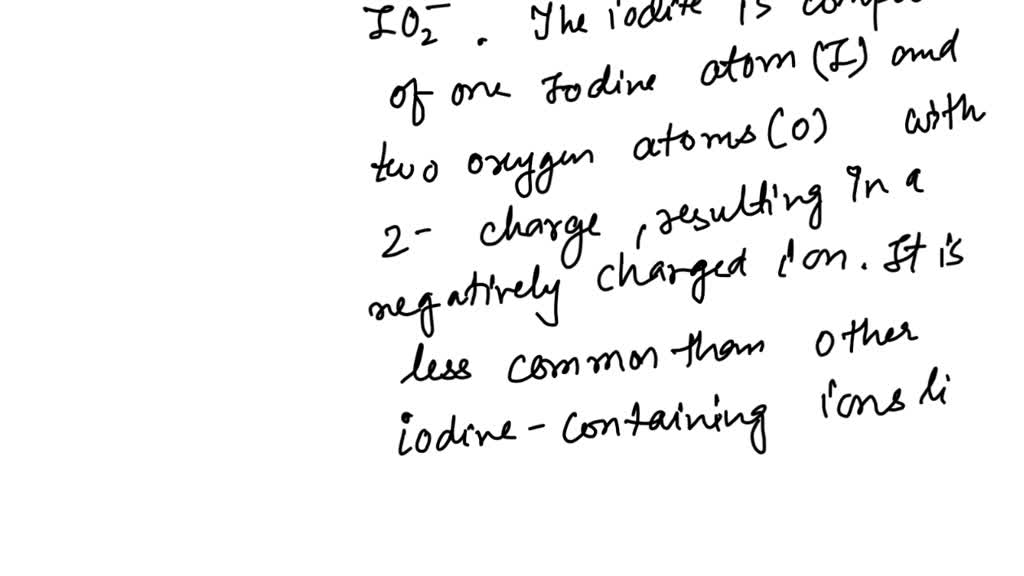 IO₂⁻. The iodite is compo
of one Iodine atom (I) and
two oxygen atoms (O) with
2- charge, resulting in a
negatively charged ion. It is
less common than other
iodine-containing ions li